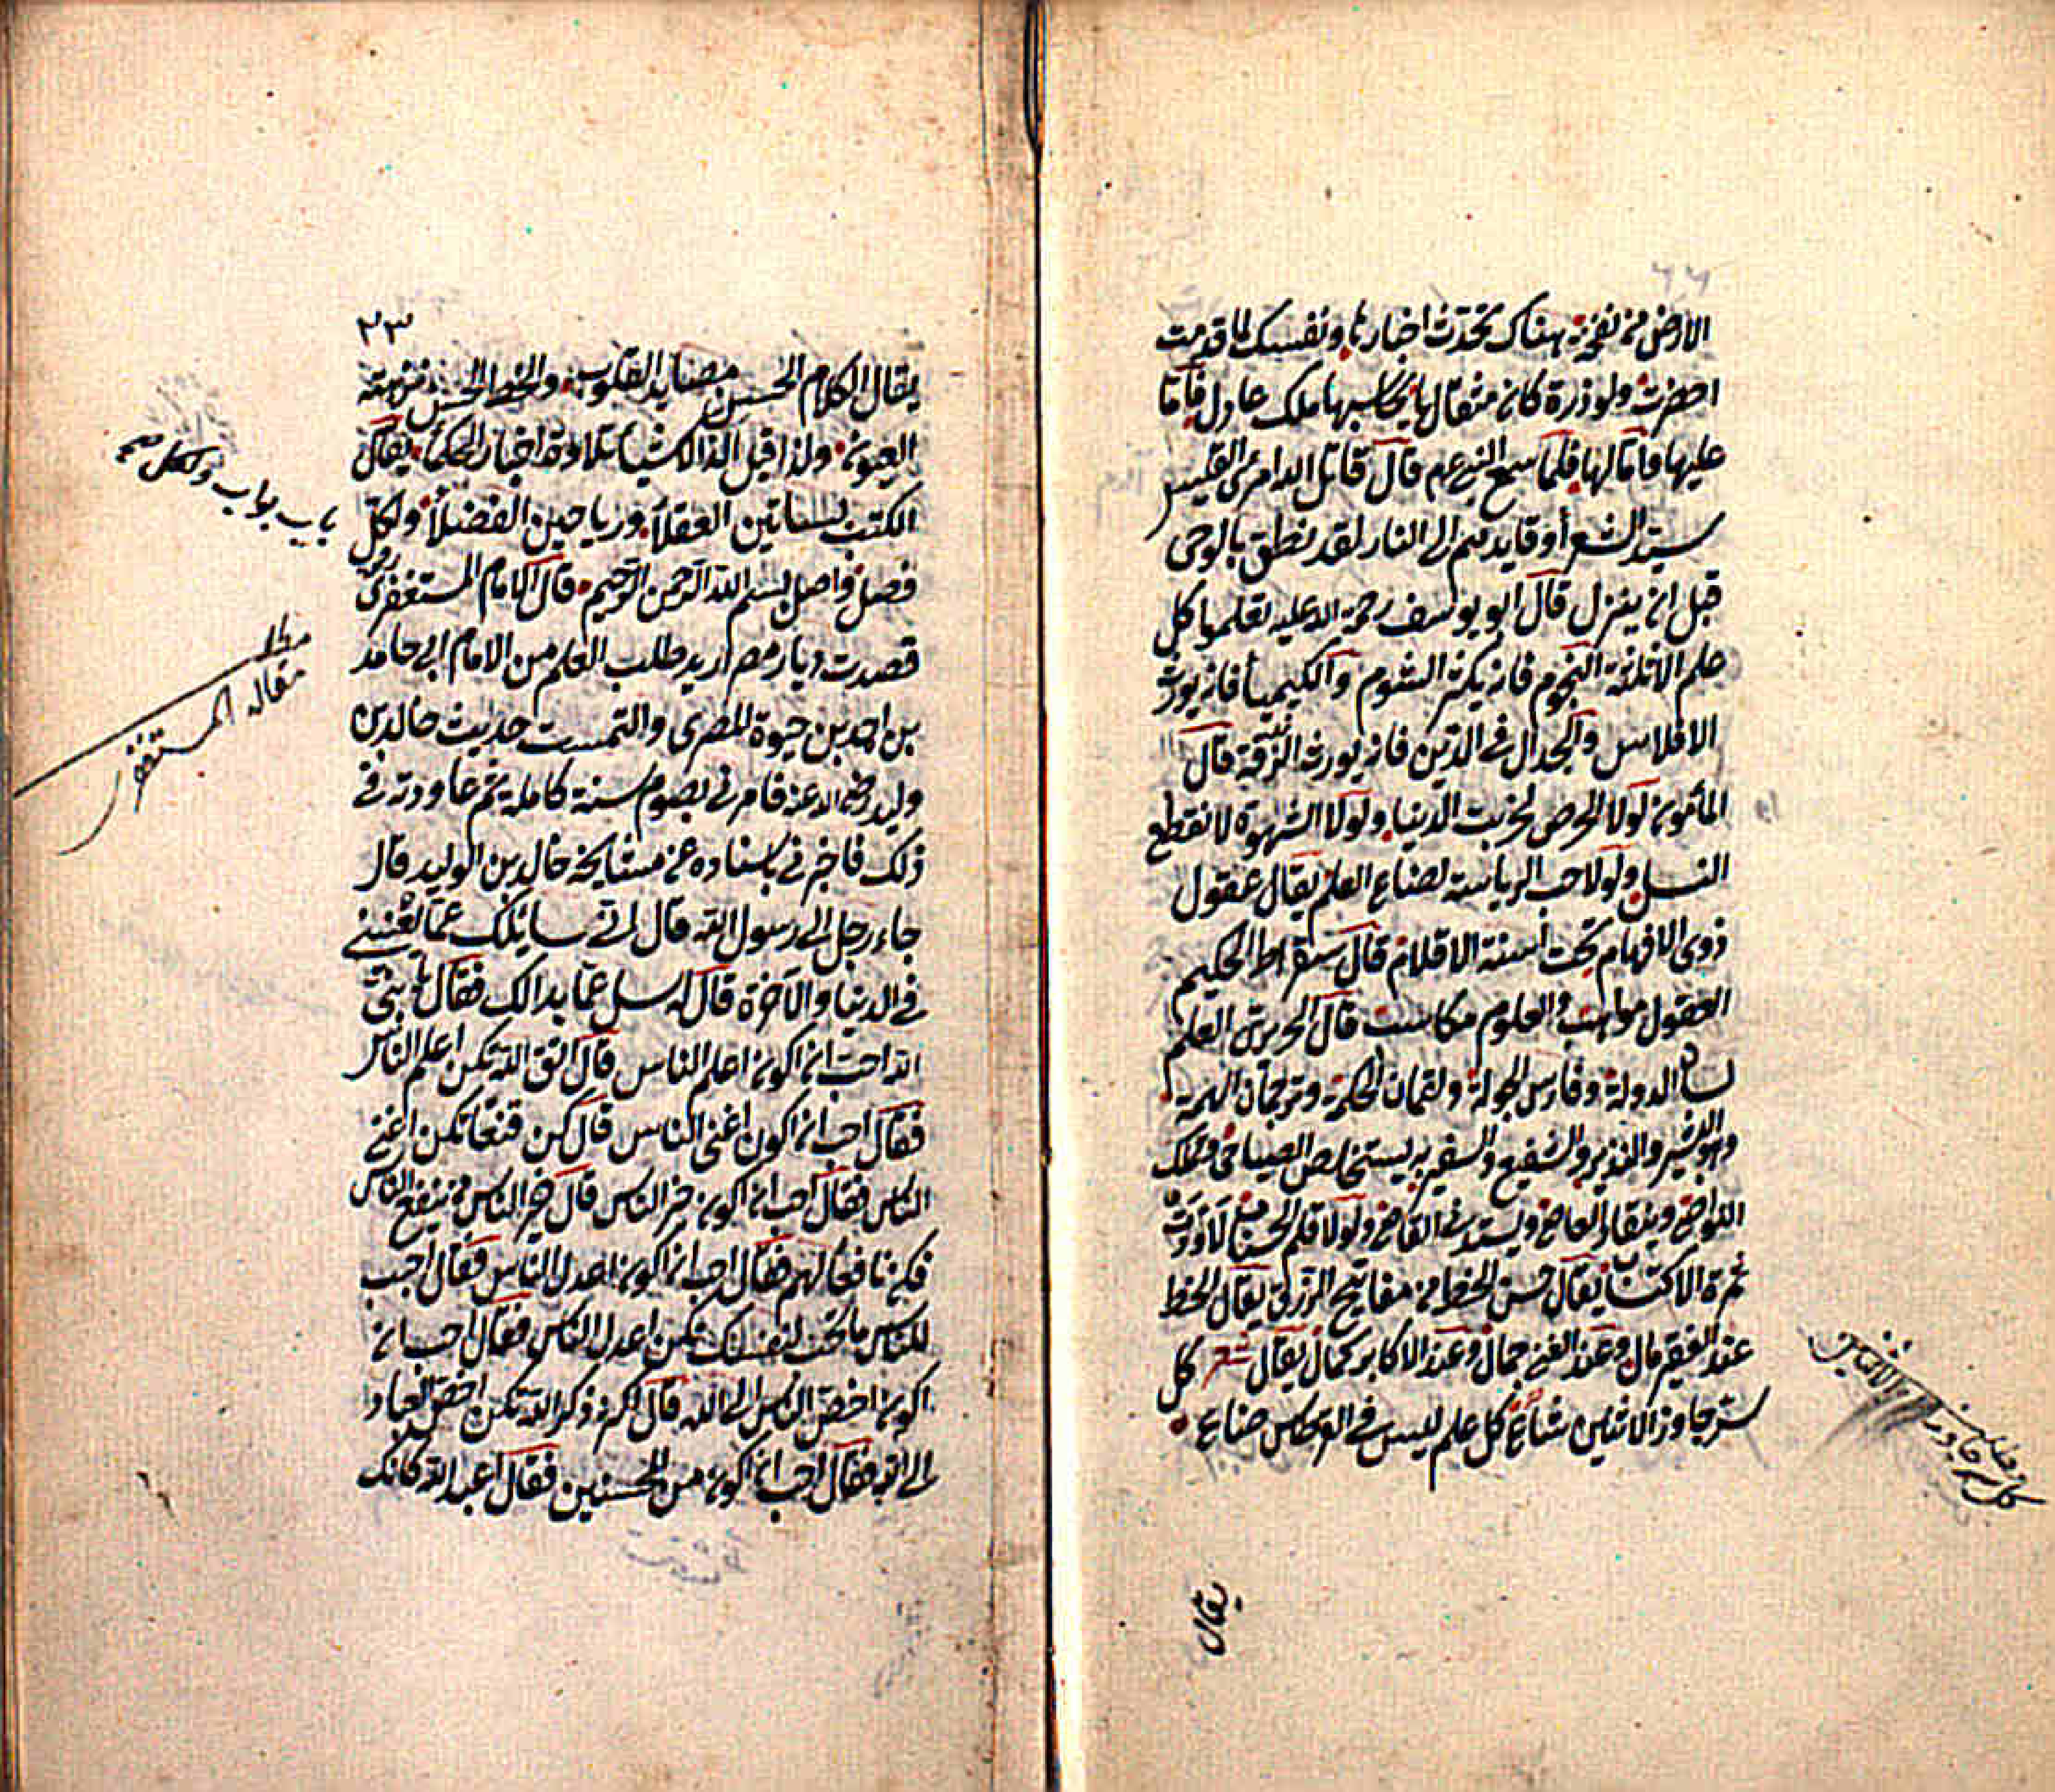 الارض من نفخة هناك تحدث اخبارها ونفسك ما قدمت
احضرت ولو ذرة كان مثقالها يحاسبها ملك عادل فاما
عليها واما لها فلما سمع النبي عم قال قاتل الله امرئ القيس
سيد الشعرأ وقايدهم الى النار لقد نطق بالوحى
قبل ان ينزل قال ابو يوسف رحمة الله عليه تعلموا كل
علم الا ثلثة النجوم فانه يكثر الشوم والكيميأ فانه يورث
الافلاس والجدال فى الدين فانه يورث الزندقة قال
المأمون لولا الحرص لخربت الدنيا ولولا الشهوة لانقطع
النسل ولولا حب الرياسة لضاع العلم يقال عقول
ذوى الافهام تحت أسنة الاقلام قال سقراط الحكيم
العقول مواهب والعلوم مكاسب قال الحريرى القلم
لسان الدولة وفارس الجولة ولقمان الحكمة وترجمان الهمة
وهو البشير والنذير والشفيع والسفير به يستخلص الصياصى وتملك
النواصى وينقاد العاصى ويستدنى القاصى ولولا قلم الحساب لاودت
ثمرة الاكتساب يقال حسن الخط من مفاتيح الرزق يقال الخط
عند الفقير مال وعند الغنى جمال وعند الاكابر كمال يقال شعر كل
سر جاوز الاثنين شاع كل علم ليس فى القرطاس ضاع
كل سر جاوز الاثنين
يقال
٢٣
يقال الكلام الحسن مصايد القلوب والخط الحسن نزهة
العيون ولذا قيل الذ الاشيأ تلاوة اخبار الحكمأ يقال
الكتب بساتين العقلأ ورياحين الفضلأ ولكل
فصل واصل بسم الله الرحمن الرحيم قال الامام المستغفرى
قصدت ديار مصر اريد طلب العلم من الامام ابى حامد
بن احمد بن حيوة المصرى والتمست حديث خالد بن
وليد رضى الله عنه فامرنى بصوم سنة كاملة ثم عاودته فى
ذلك فاخبرنى باسناده عن مشايخه خالد بن الوليد قال
جاء رجل الى رسول الله قال انى سائلك عما يغنينى
فى الدنيا والآخرة قال له سل عما بدا لك فقال يا نبى
الله احب ان اكون اعلم الناس قال اتق الله تكن اعلم الناس
فقال احب ان اكون اغنى الناس قال كن قنعا تكن اغنى
الناس فقال احب ان اكون خير الناس قال خير الناس من ينفع الناس
فكن نافعا لهم فقال احب ان اكون اعدل الناس فقال احب
للناس ما تحب لنفسك تكن اعدل الناس فقال احب ان
اكون اخص الناس الى الله قال اكثر ذكر الله تكن اخص العباد
الى الله فقال احب ان اكون من المحسنين فقال اعبد الله كانك
باب بواب ولكل
مقاله المستغفر